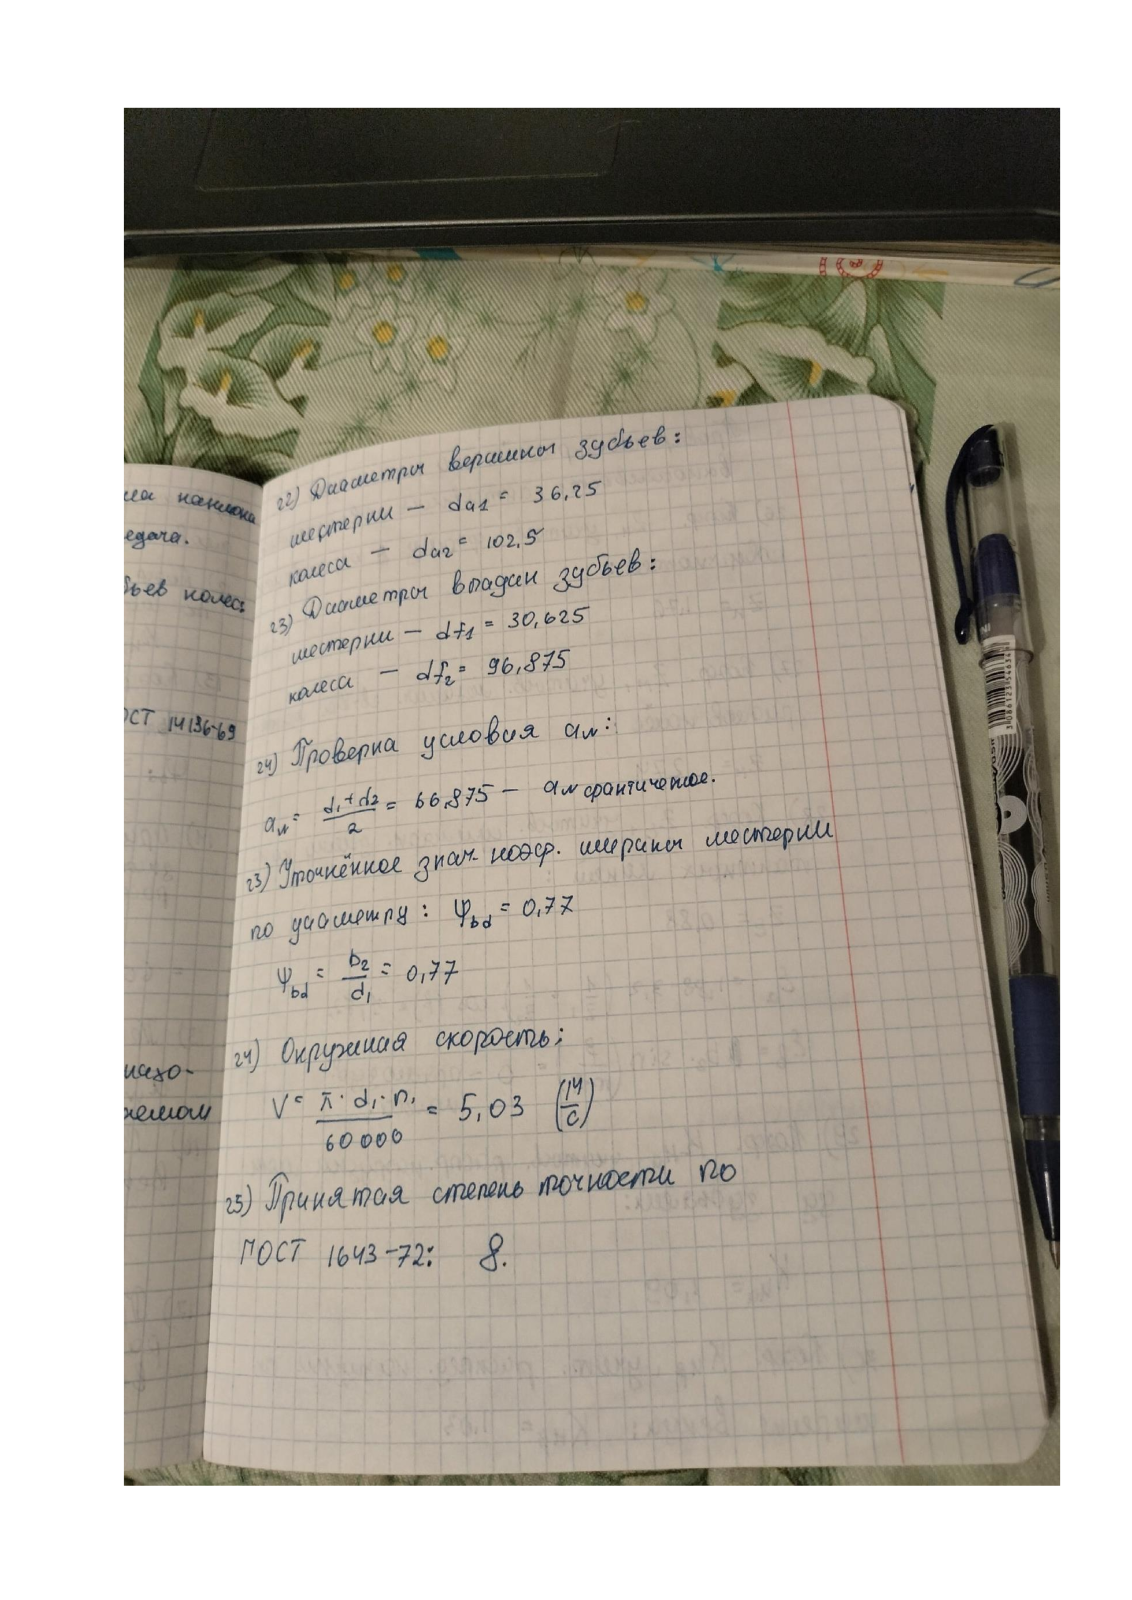 ла наклона
едача.
бьев колес:
ОСТ 14136-69
нахо-
аемом
22) Диаметры вершины зубьев:
шестерни — da1 = 36,25
колеса — da2 = 102,5
23) Диаметры впадин зубьев:
шестерни — df1 = 30,625
колеса — df2 = 96,875
24) Проверка условия aw:
aw = (d1+d2)/2 = 66,875 — aw фактическое.
23) Уточнённое знач. коэф. ширины шестерни
по диаметру: ψbd = 0,77
ψbd = b2/d1 = 0,77
24) Окружная скорость:
V = π·d1·n1/60000 = 5,03 (м/с)
25) Принятая степень точности по
ГОСТ 1643-72: 8.